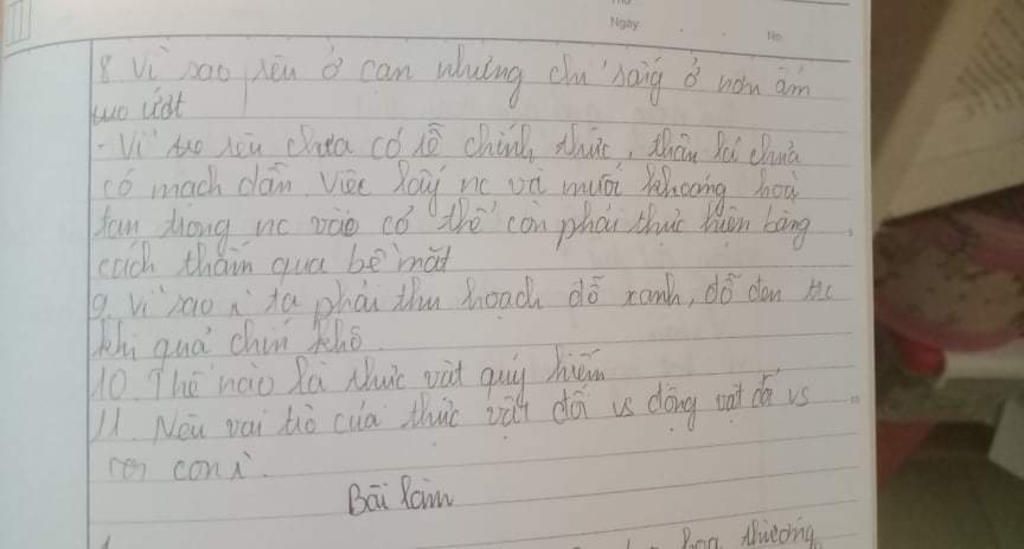 Ngày
No
8. Vì sao rêu ở cạn nhưng chỉ sống ở nơi ẩm
ướt
- Vì rêu chưa có rễ chính thức, thân lá chưa
có mạch dẫn. Việc lấy nc và muối khoáng hoà
tan trong nc vào cơ thể còn phải thực hiện bằng
cách thấm qua bề mặt
9. Vì sao ta phải thu hoạch đỗ xanh, đỗ đen trc
khi quả chín khô.
10. Thế nào là thực vật quý hiếm
11. Nêu vai trò của thực vật đối vs động vật đối vs
con
Bài làm
hoa thường